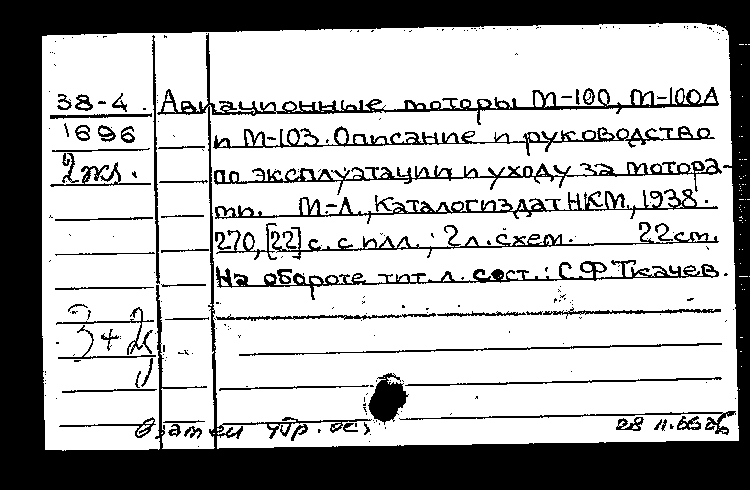 38-4 Авиационные моторы М-100, М-100А
1696 и М-103. Описание и руководство
2 экз. по эксплуатации и уходу за мотора-
ми. М-Л., Каталогиздат НКМ, 1938.
270, [22] с. с илл.; 2 л. схем. 22 см.
На обороте тит. л. сост.: С.Ф Ткачев.
3 + 2
взамен
28 11.66